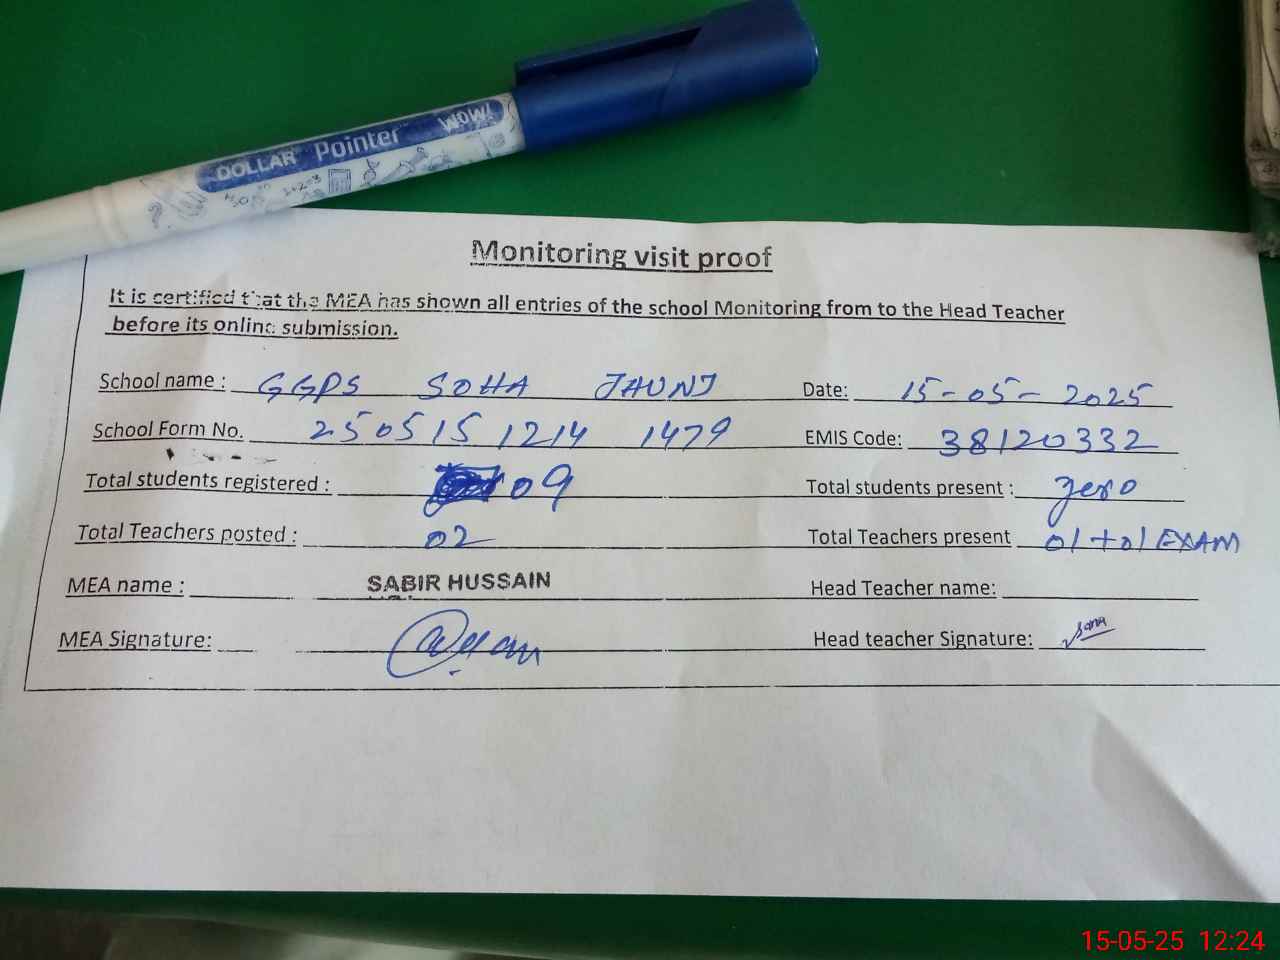 DOLLAR Pointer WOW!
Monitoring visit proof
It is certified that the MEA has shown all entries of the school Monitoring from to the Head Teacher
before its online submission.
School name : GGPS SOHA JHUNJ Date: 15-05-2025
School Form No. 250515 1214 1479 EMIS Code: 38120332
Total students registered : 09 Total students present : zero
Total Teachers posted : 02 Total Teachers present 01+01 EXAM
MEA name : SABIR HUSSAIN Head Teacher name:
MEA Signature: Head teacher Signature: Sana
15-05-25 12:24